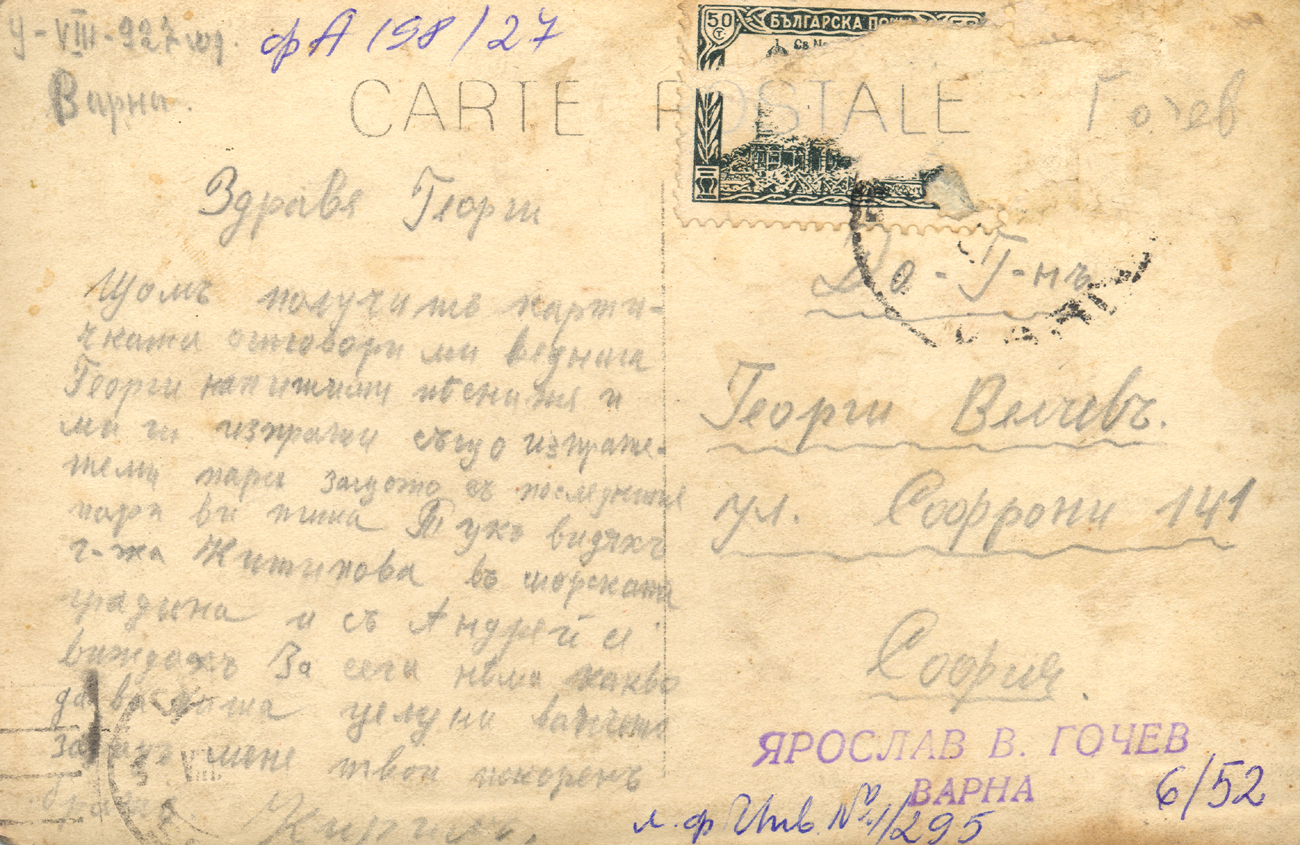 9-VIII-927 год.
Варна.
фА 198/27
CARTE POSTALE
50
БЪЛГАРСКА
Гочев
Здравя Георги
Щомъ получишъ карти-
чката отговори ми веднага
Георги напишими песнитя и
ми ги изпрати също изпрате-
теми пари защото съ последнитя
пари ви пиша Тукъ видяхъ
г-жа Житикова въ морската
градина и съ Андрей се
виждахъ За сега нема какво
да ви пиша целуни
за мене твои искоренъ
братъ Кирилъ.
До - Г-нъ
Георги Велчевъ.
ул. Софрони 141
София.
ЯРОСЛАВ В. ГОЧЕВ
ВАРНА
6/52
л.ф Инв № 1/295